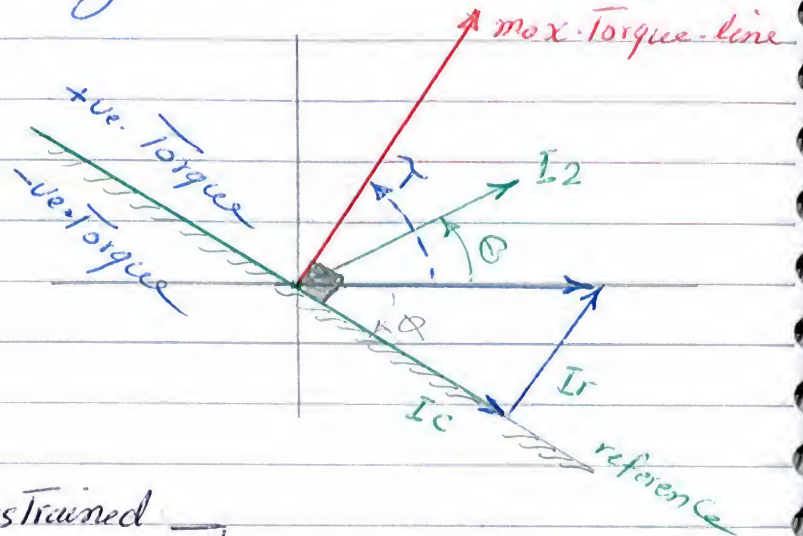 mox. Torque. line
+ve. Torque
-ve. Torque
λ
I2
θ
Ir
Ic
reference
sTrained